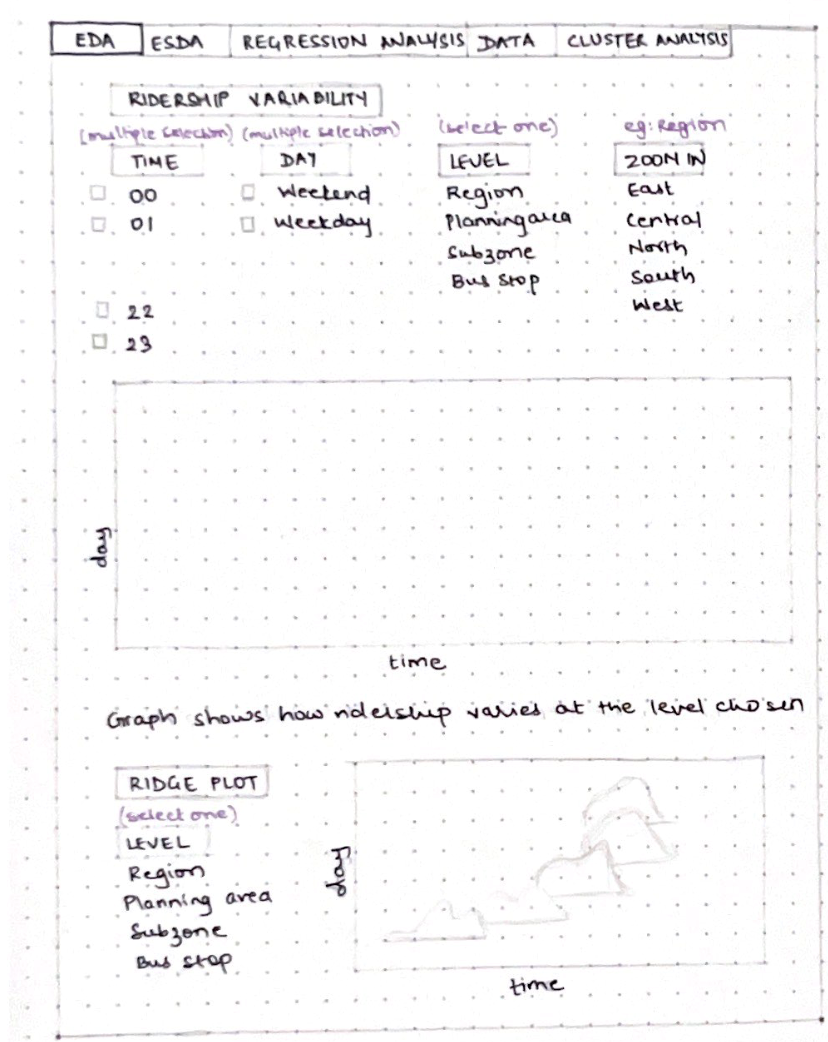 EDA ESDA REGRESSION ANALYSIS DATA CLUSTER ANALYSIS
RIDERSHIP VARIABILITY
(multiple selection) (multiple selection) (select one) eg: Region
TIME DAY LEVEL ZOOM IN
00 Weekend Region East
01 Weekday Planning area Central
Subzone North
Bus Stop South
22 West
23
day
time
Graph shows how ridership varies at the level chosen
RIDGE PLOT
(select one)
LEVEL
Region
Planning area
Subzone
Bus stop
day
time